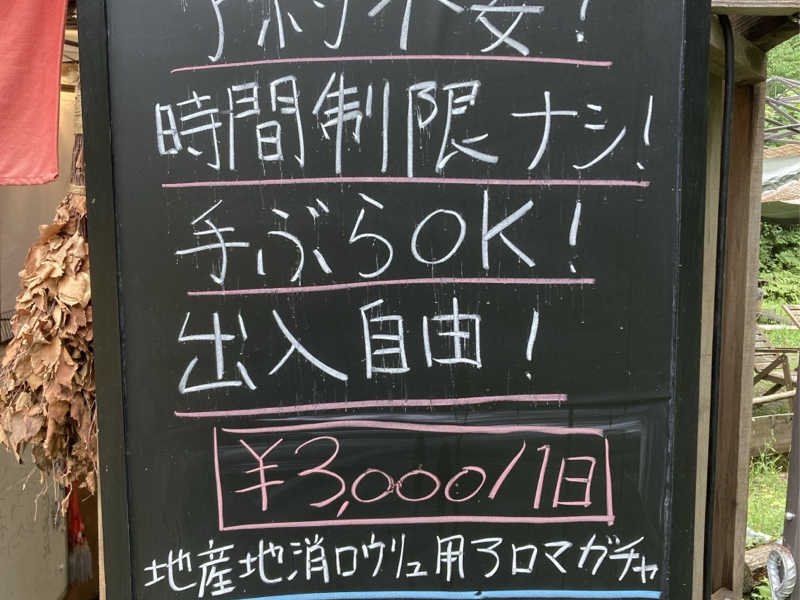 予約不要!
時間制限ナシ!
手ぶらOK!
出入自由!
¥3,000/1日
地産地消ロウリュ用アロマガチャ